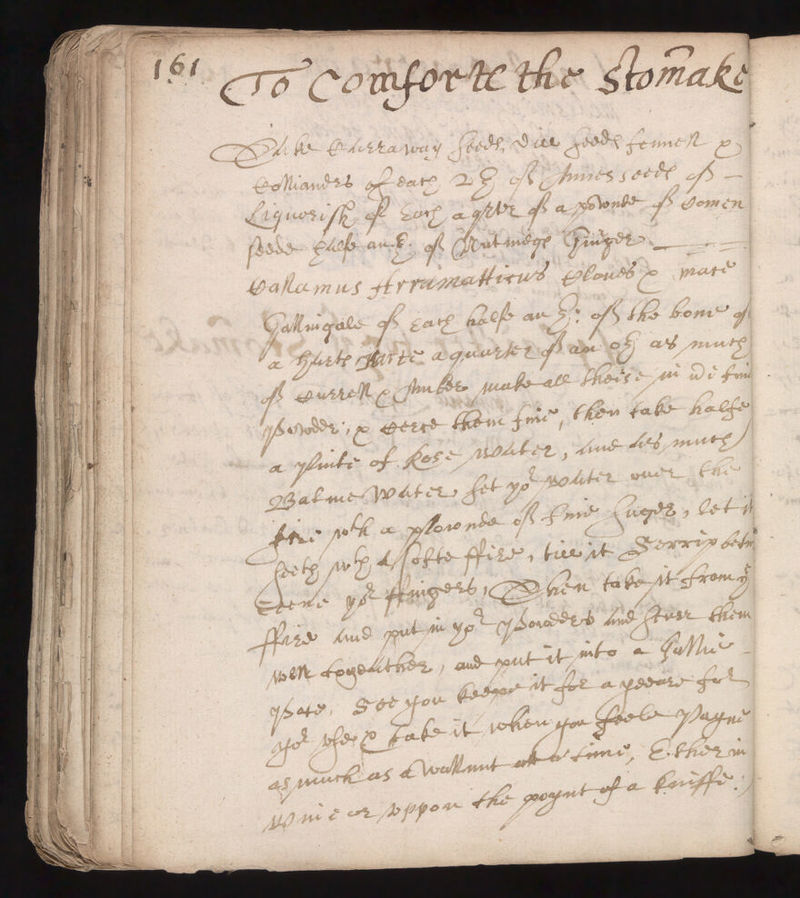 161
To Comforte the Stom̄ake
Take Carraway seeds, Dill seeds fennell &
Collianders of each 2 ℥ of Annesseeds of
Liquorish of Each a qrter of a pownde of Comen
seede halfe an ℥: of Nutmegs Ginger
Callamus Arramatticus Cloues & mace
Gallingale of Each halfe an ℥: of the bone of
a hartes a quarter of an as much
of Currell & Amber make all theise in
Powder; & Cerce them fine, then take halfe
a Pinte of Rose Water, and as much
Balme Water set yor Water over the
fire wth a pownde of fine Suger, let it
seeth wth a softe ffire, till it Serrip betw
eene yor ffingers, Then take it from ye
ffire and put in yor Powders and sturr them
well togeather, and put it into a Gallie
Pote, See you keepe it for a yeeare for
yor vse, & take it when you feele Payne
as much as a Wallnut att a time, Ether in
Wine or vppon the poynt of a kniffe: